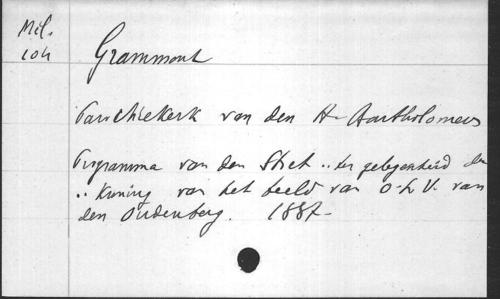 Mil.
104
Grammont
Parochiekerk van den H. Bartholomeus
Programma van den Stoet .. ter gelegenheid der
.. Kroning van het beeld van O.L.V. van
den Oudenberg. 1887.